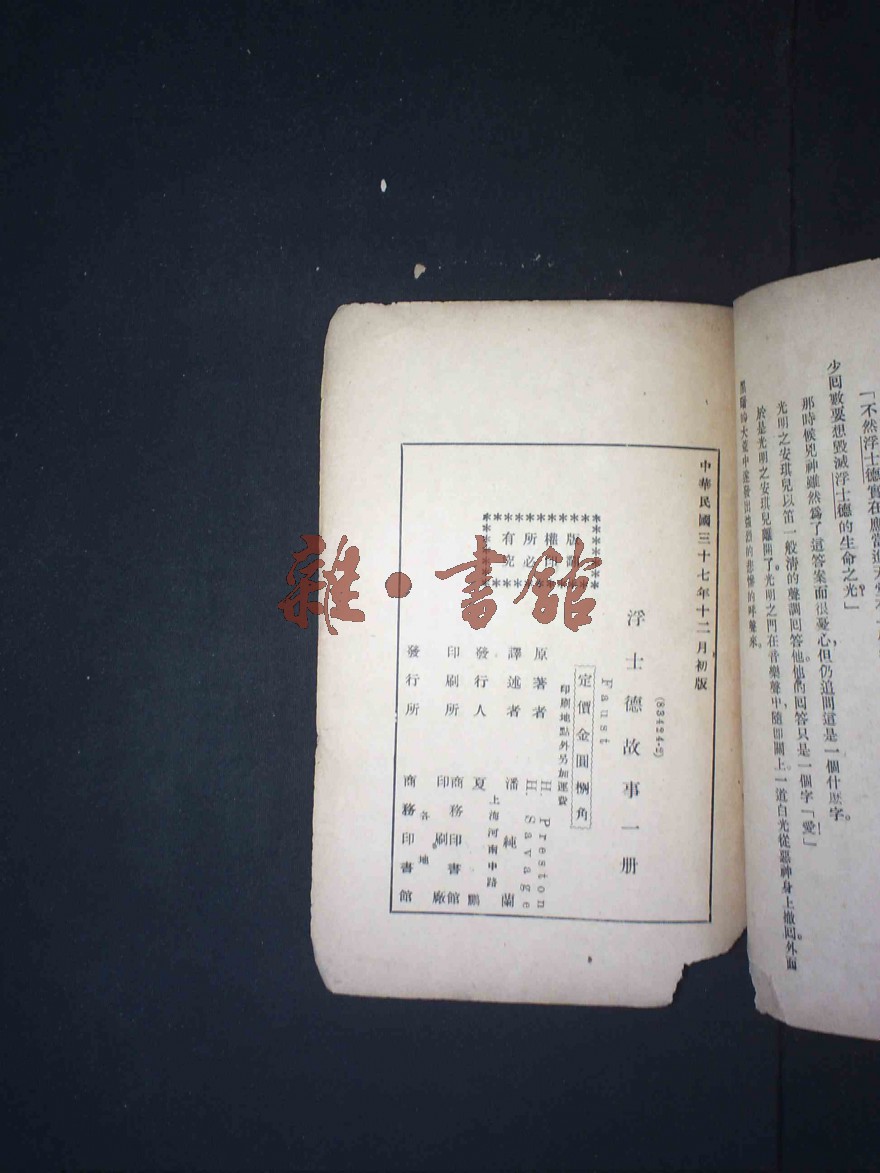 「不然浮士德實在應當進天堂
少回數要想毀滅浮士德的生命之光」
那時候兇神雖然爲了這答案而很憂心,但仍追問這是一個什麽字。
光明之安琪兒以笛一般清的聲調回答他他們回答只是一個字「愛!」
於是光明之安琪兒離開了。光明之門在音樂聲中隨即關上。一道白光從惡神身上撤回外面
大空中遂發出強烈的悲慘的呼聲來。
中華民國三十七年十二月初版
(83424·2)
浮士德故事一册
Faust
定價金圓 角
印刷地點外另加運費
版權所有
翻印必究
原著者 H. Preston
H. Savage
譯述者 潘純蘭
上海河南中路
發行人 夏鵬
印刷所 商務印書館
印刷廠
各地
發行所 商務印書館
雜·書館